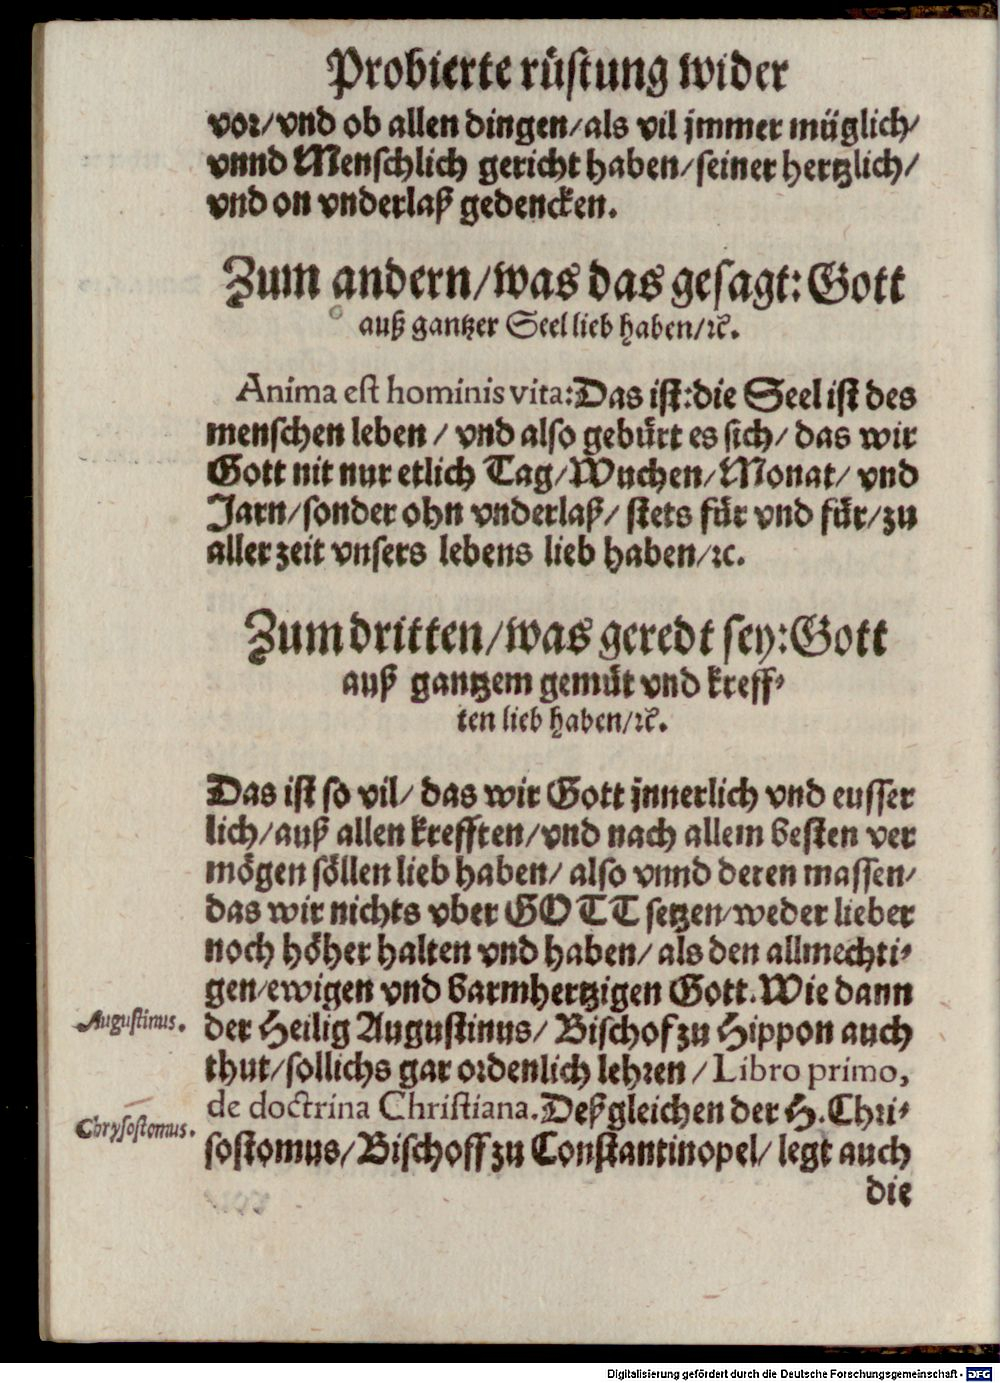 Probierte rüstung wider
vor/vnd ob allen dingen/als vil jmmer müglich/
vnnd Menschlich gericht haben/seiner hertzlich/
vnd on vnderlaß gedencken.
Zum andern/was das gesagt: Gott
auß gantzer Seel lieb haben/ꝛc̃.
Anima est hominis vita: Das ist: die Seel ist des
menschen leben / vnd also gebürt es sich/ das wir
Gott nit nur etlich Tag/Wuchen/Monat/ vnd
Jarn/sonder ohn vnderlaß/ stets für vnd für/zu
aller zeit vnsers lebens lieb haben/ꝛc.
Zum dritten/was geredt sey: Gott
auß gantzem gemüt vnd kreff-
ten lieb haben/ꝛc̃.
Das ist so vil/ das wir Gott jnnerlich vnd eusser
lich/auß allen krefften/vnd nach allem besten ver
mögen söllen lieb haben/ also vnnd deren massen/
das wir nichts vber GOTT setzen/weder lieber
noch höher halten vnd haben/ als den allmechti-
gen/ewigen vnd barmhertzigen Gott. Wie dann
Augustinus.
der Heilig Augustinus/ Bischof zu Hippon auch
thut/sollichs gar ordenlich lehren / Libro primo,
de doctrina Christiana. Deßgleichen der H. Chri-
Chrysostomus.
sostomus/Bischoff zu Constantinopel/ legt auch
die
Digitalisierung gefördert durch die Deutsche Forschungsgemeinschaft - DFG